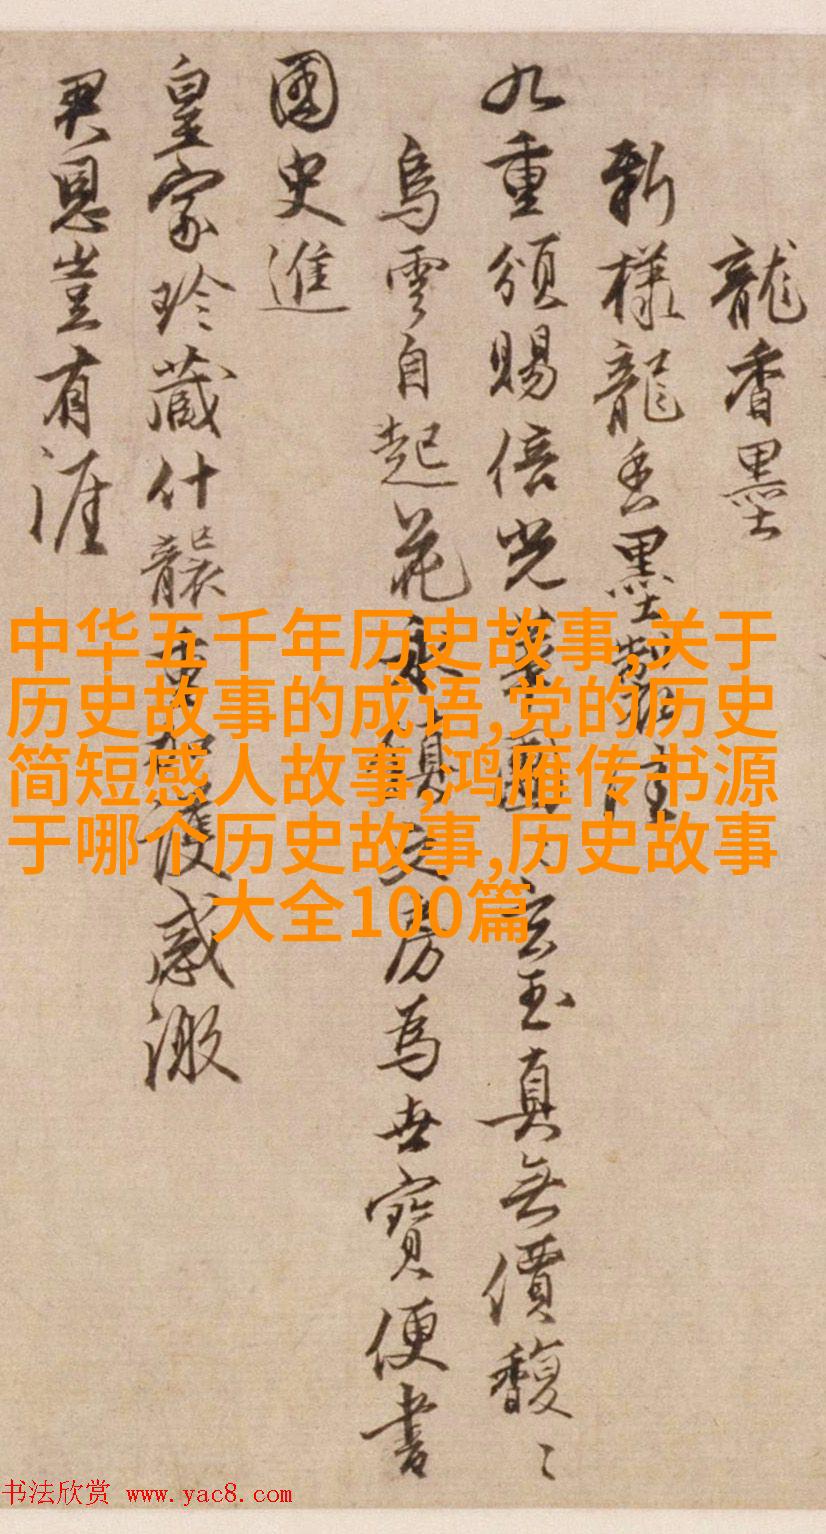 龍香墨
新樣龍香墨製佳
九重頒賜倍光華玄玉真無價馥〻
烏雲自起花永鎮文房為世寶便書
國史進
皇家珍藏什襲護感激
君恩豈有涯
中华五千年历史故事,关于
历史故事的成语,党的历史
简短感人故事,鸿雁传书源
于哪个历史故事,历史故事
大全100篇
书法欣赏 www.yac8.com